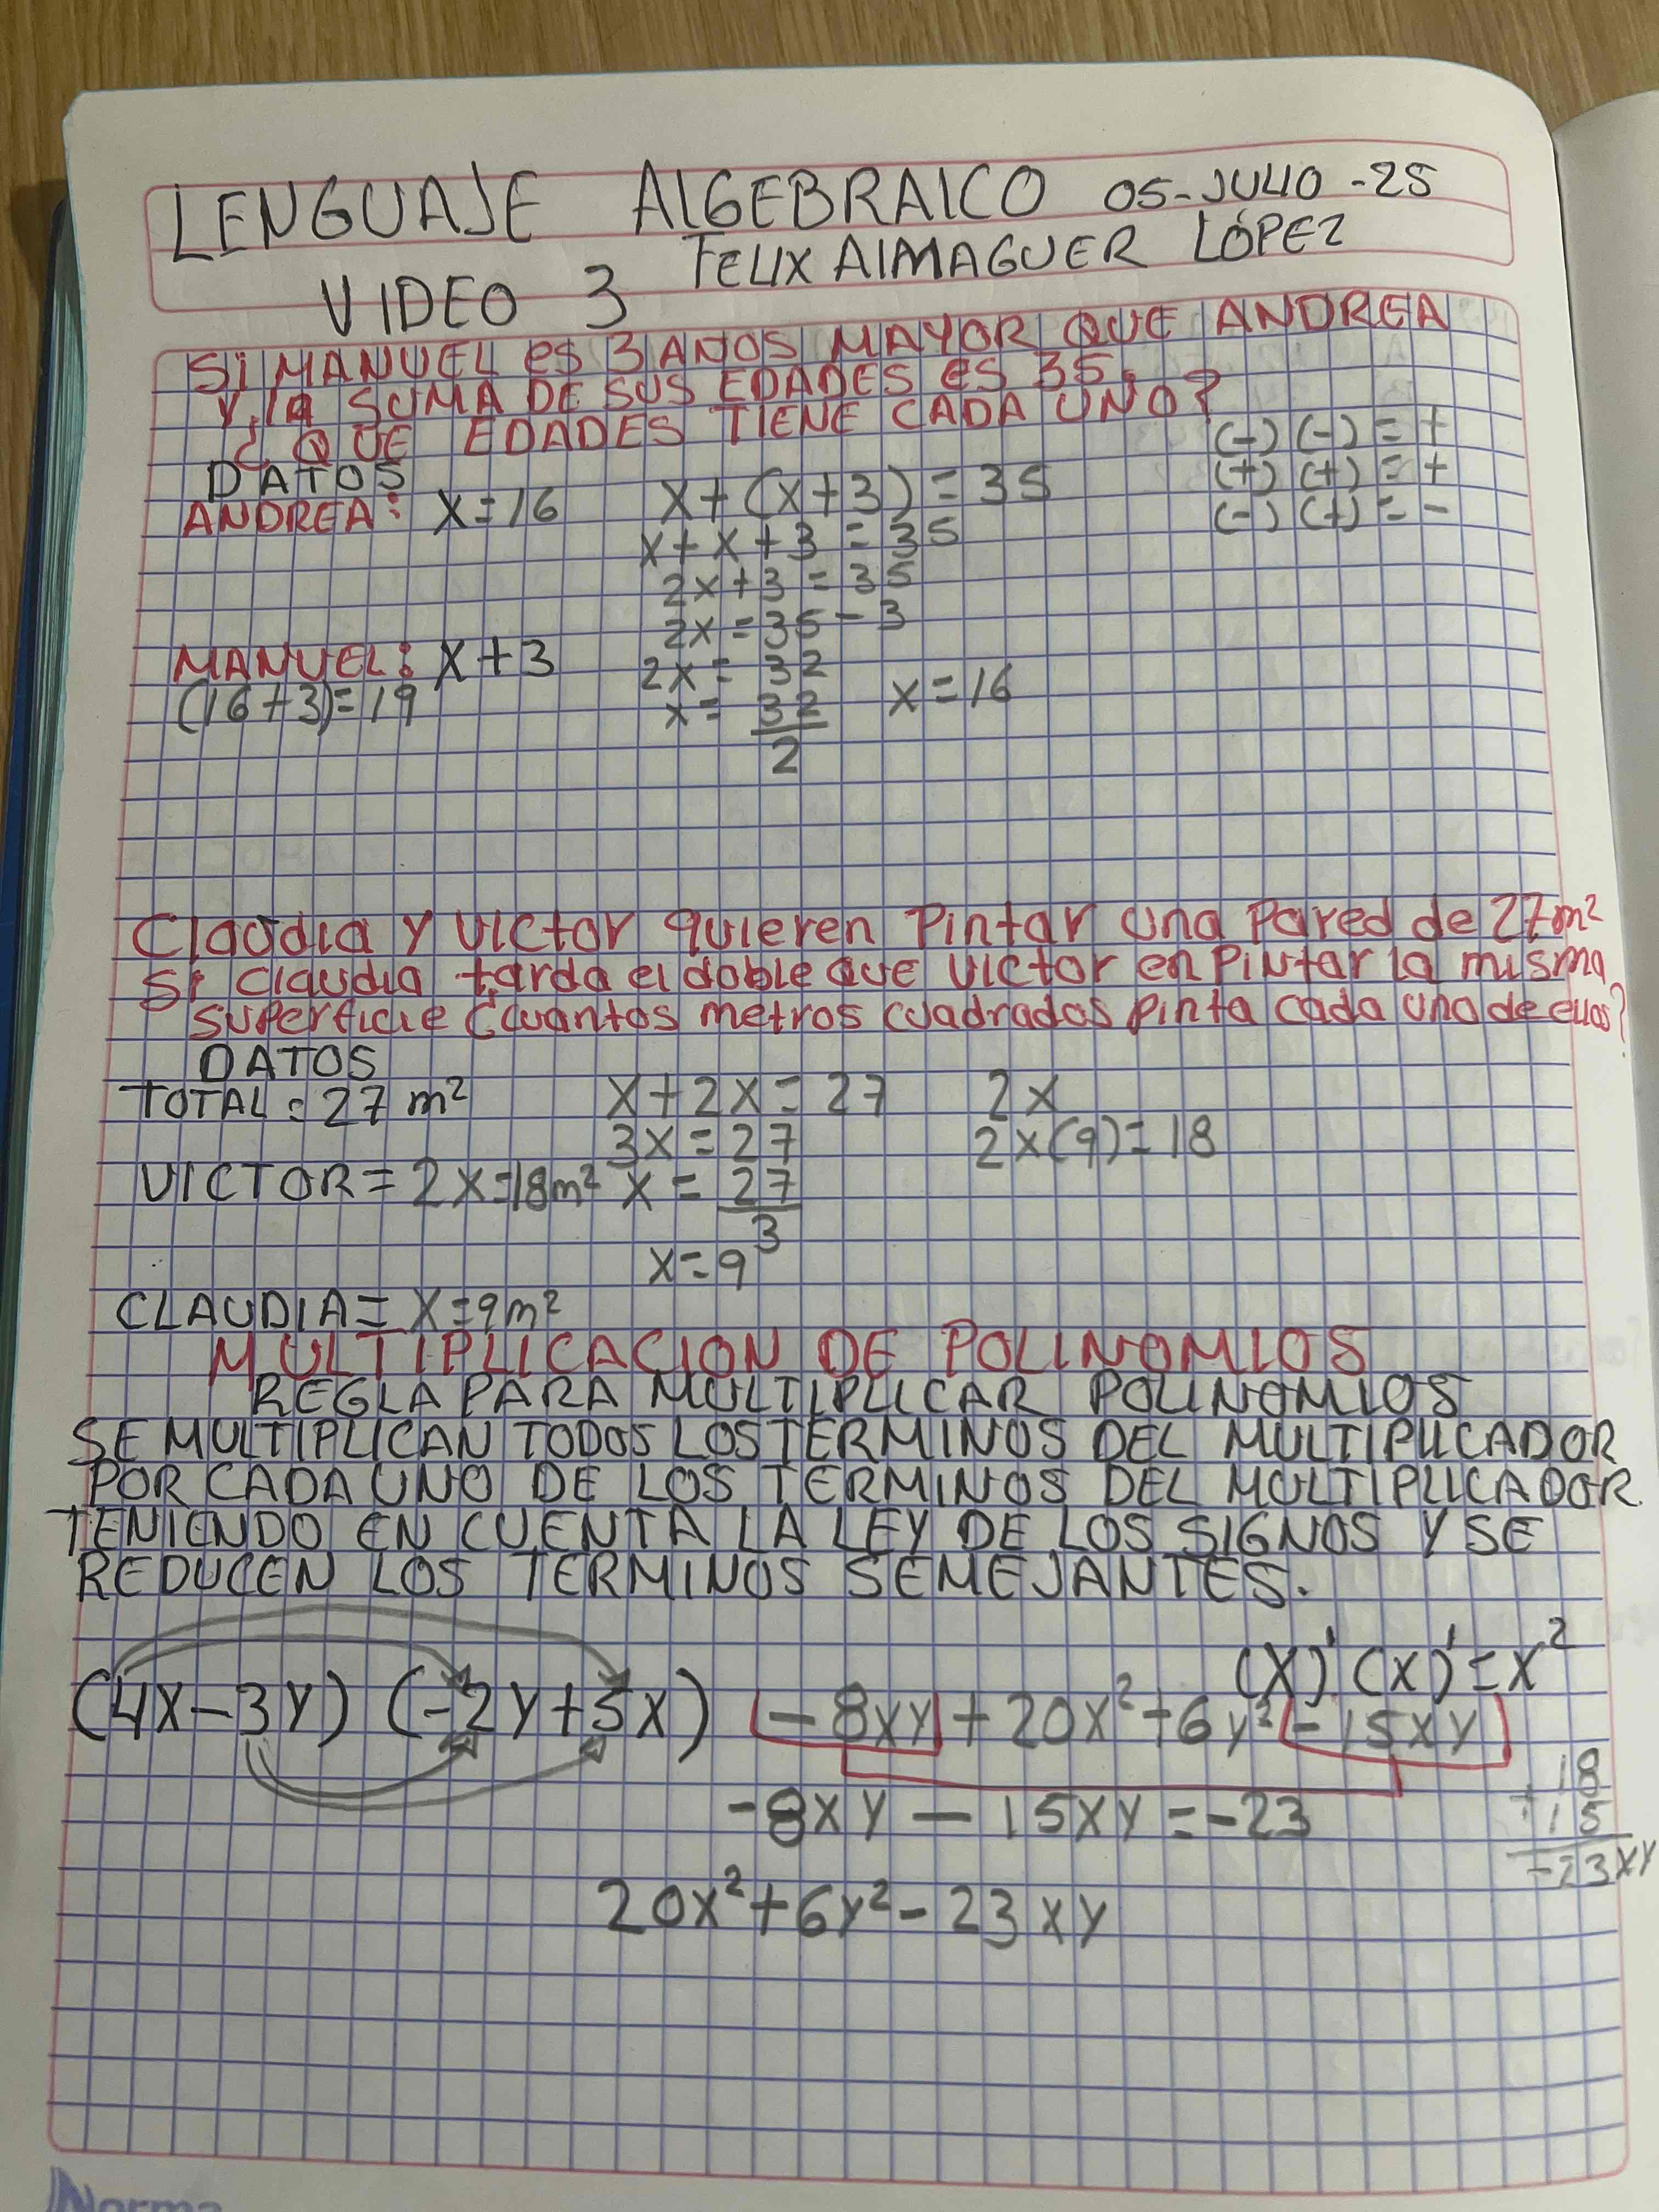 LENGUAJE ALGEBRAICO 05-JULIO-25
VIDEO 3 FELIX ALMAGUER LÓPEZ
SI MANUEL es 3 ANOS MAYOR QUE ANDREA
Y, la SUMA DE SUS EDADES es 35.
¿ QUE EDADES TIENE CADA UNO?
(-) (-) = +
DATOS
(+) (+) = +
ANDREA: X=16 X+(X+3)=35
(-) (+) = -
X+X+3=35
2X+3=35
2X=35-3
MANUEL: X+3
2X=32
(16+3)=19
X=32/2 X=16
Claudia y Victor quieren Pintar una Pared de 27m²
Si Claudia tarda el doble que Victor en Pintar la misma
superficie ¿cuantos metros cuadrados pinta cada uno de ellos?
DATOS
TOTAL=27 m² X+2X=27 2X
3X=27 2x(9)=18
VICTOR=2X=18m² X=27/3
X=9
CLAUDIA=X=9m²
MULTIPLICACION DE POLINOMIOS
REGLA PARA MULTIPLICAR POLINOMIOS
SE MULTIPLICAN TODOS LOS TERMINOS DEL MULTIPLICADOR
POR CADA UNO DE LOS TERMINOS DEL MULTIPLICADOR.
TENIENDO EN CUENTA LA LEY DE LOS SIGNOS Y SE
REDUCEN LOS TERMINOS SEMEJANTES.
(X)¹(X)¹=X²
(4X-3Y)(-2Y+5X) -8XY+20X²+6Y²-15XY
18
-8XY-15XY=-23
15
-23XY
20X²+6Y²-23XY
Norma